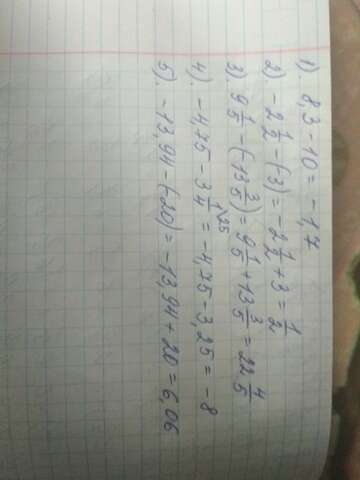 1). 8,3-10=-1,7
2) -2 1/2 -(-3)=-2 1/2 +3= 1/2
3). 9 1/5 -(-13 3/5)=9 1/5 +13 3/5 =22 4/5
4). -4,75-3 1/4 \25 =-4,75-3,25=-8
5). -13,94-(-20)=-13,94+20=6,06